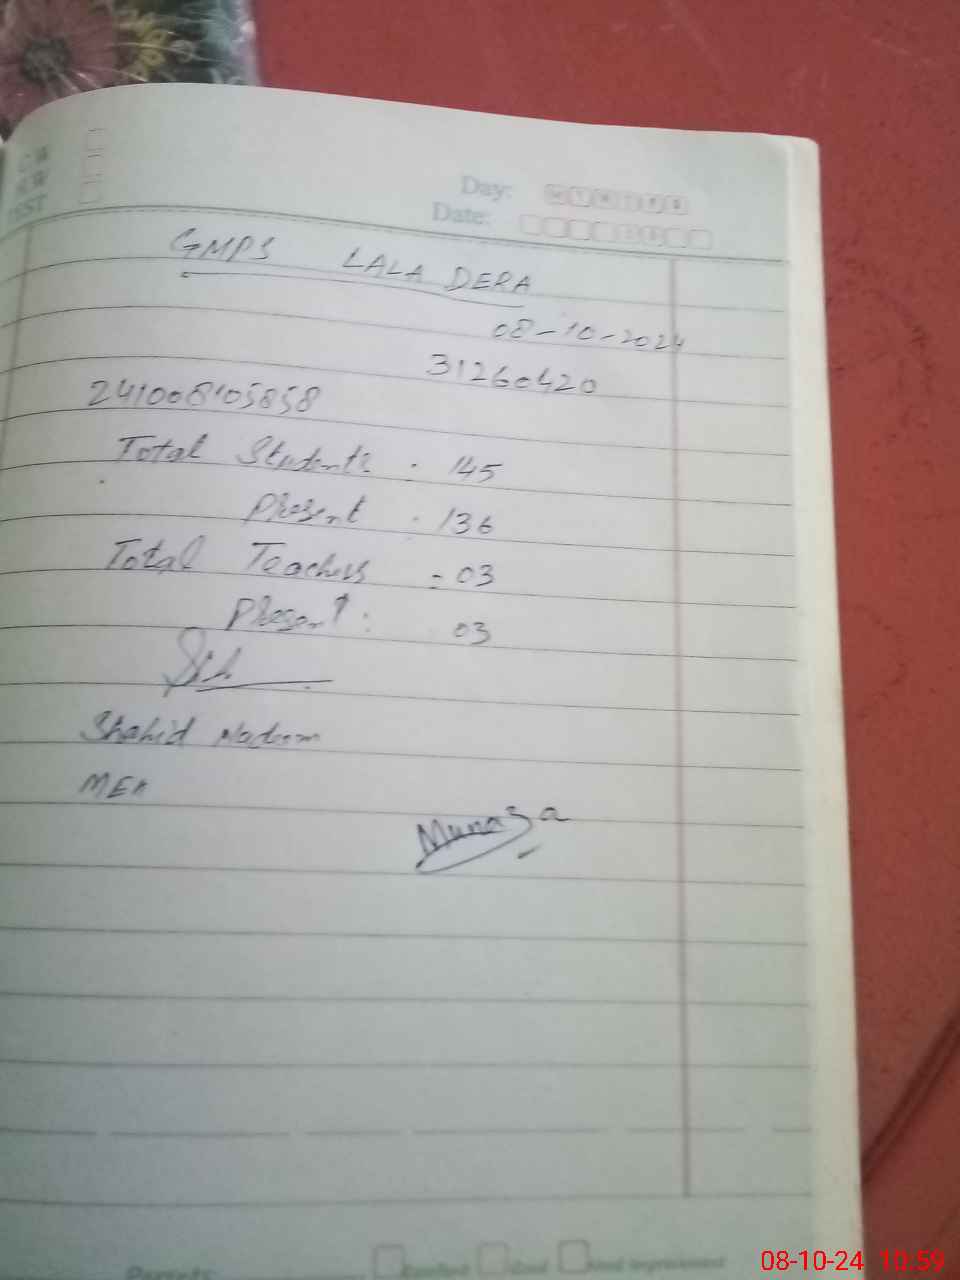 C.W
H.W
TEST
Day:
Date:
GMPS LALA DERA
08-10-2024
31260420
241008105858
Total Students : 145
Present : 136
Total Teachers = 03
Present : 03
Shahid Nadeem
MEA
Munaza
Need Improvement
08-10-24 10:59